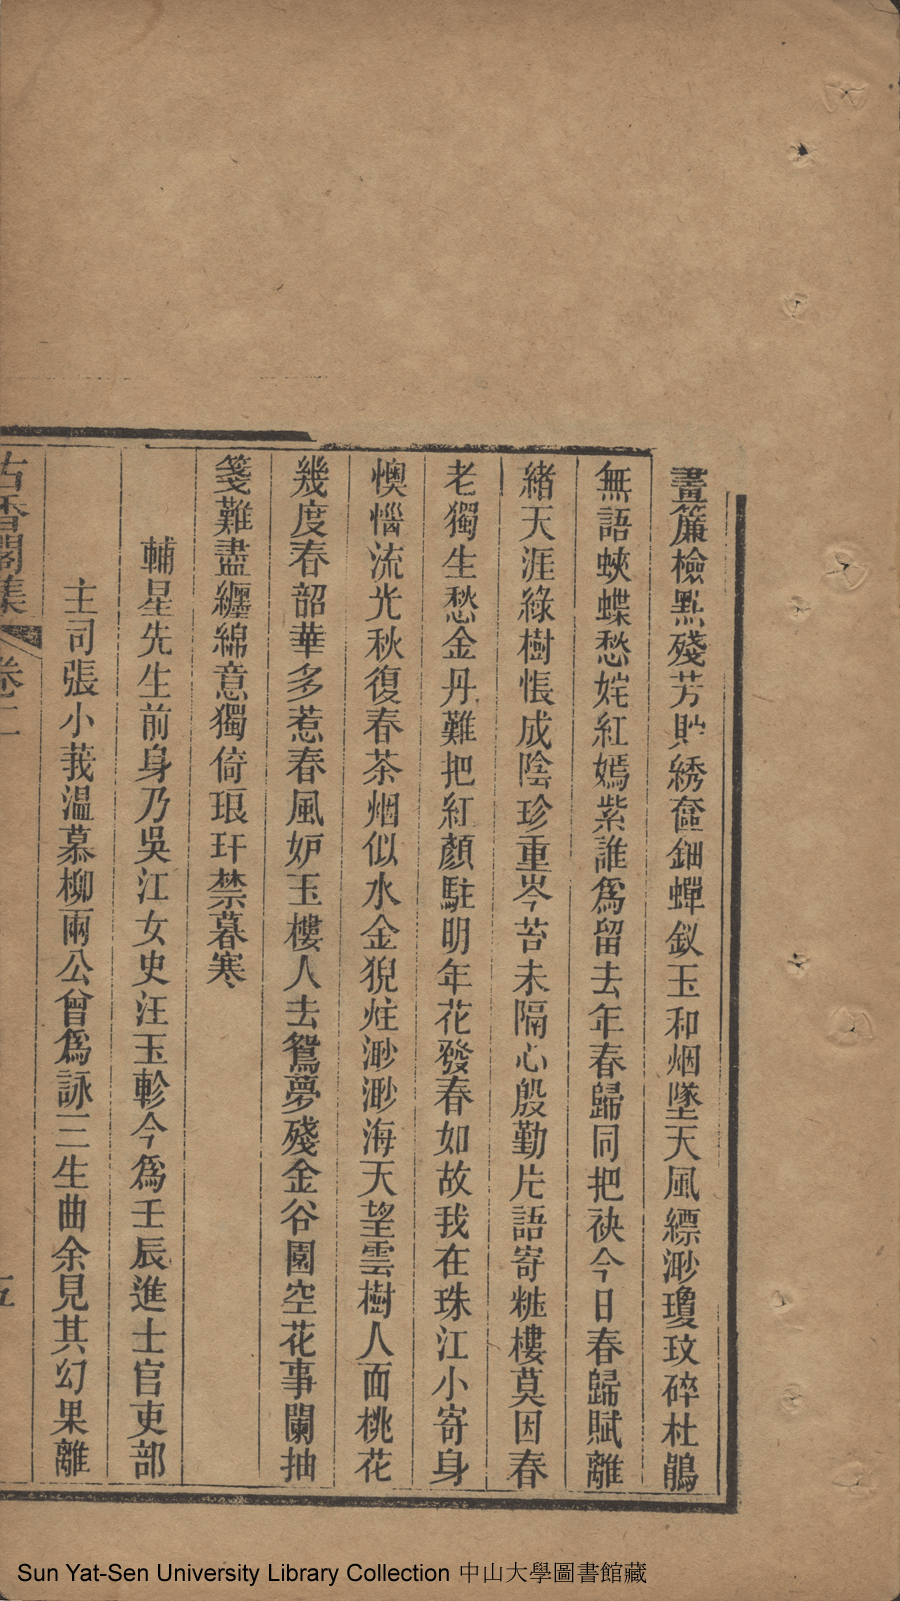 畫簾檢點殘芳貯綉奩鈿蟬釵玉和烟墜天風縹渺瓊玟碎杜鵑
無語蛺蝶愁姹紅嫣紫誰爲留去年春歸同把袂今日春歸賦離
緒天涯綠樹悵成陰珍重岑苔未隔心殷勤片語寄粧樓莫因春
老獨生愁金丹難把紅顏駐明年花發春如故我在珠江小寄身
懊惱流光秋復春茶烟似水金猊炷渺渺海天望雲樹人面桃花
幾度春韶華多惹春風妒玉樓人去鴛夢殘金谷園空花事闌抽
箋難盡纏綿意獨倚琅玕禁暮寒
輔星先生前身乃吳江女史汪玉軫今爲壬辰進士官吏部
主司張小莪溫慕柳兩公曾爲詠三生曲余見其幻果離
古香閣集 卷二 五
Sun Yat-Sen University Library Collection 中山大學圖書館藏